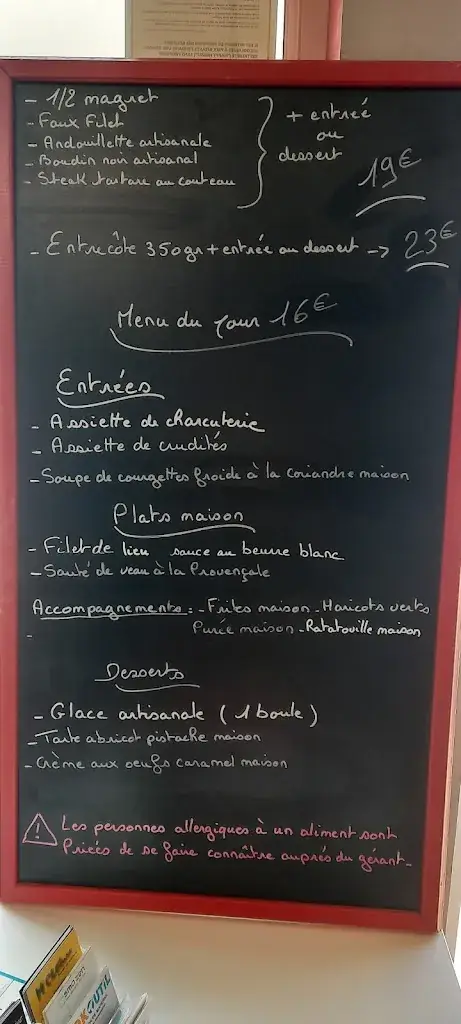 - 1/2 magret
- Faux Filet
- Andouillette artisanale
- Boudin noir artisanal
- Steak tartare au couteau
+ entrée
ou
dessert
19€
- Entrecôte 350gr + entrée ou dessert -> 23€
Menu du jour 16€
Entrées
- Assiette de charcuterie
- Assiette de crudités
- Soupe de courgettes froide à la coriandre maison
Plats maison
- Filet de lieu sauce au beurre blanc
- Sauté de veau à la Provençale
Accompagnements : - Frites maison - Haricots verts
- Purée maison - Ratatouille maison
Desserts
- Glace artisanale ( 1 boule )
- Tarte abricot pistache maison
- Crème aux oeufs caramel maison
! Les personnes allergiques à un aliment sont
Priées de se faire connaître auprès du gérant -